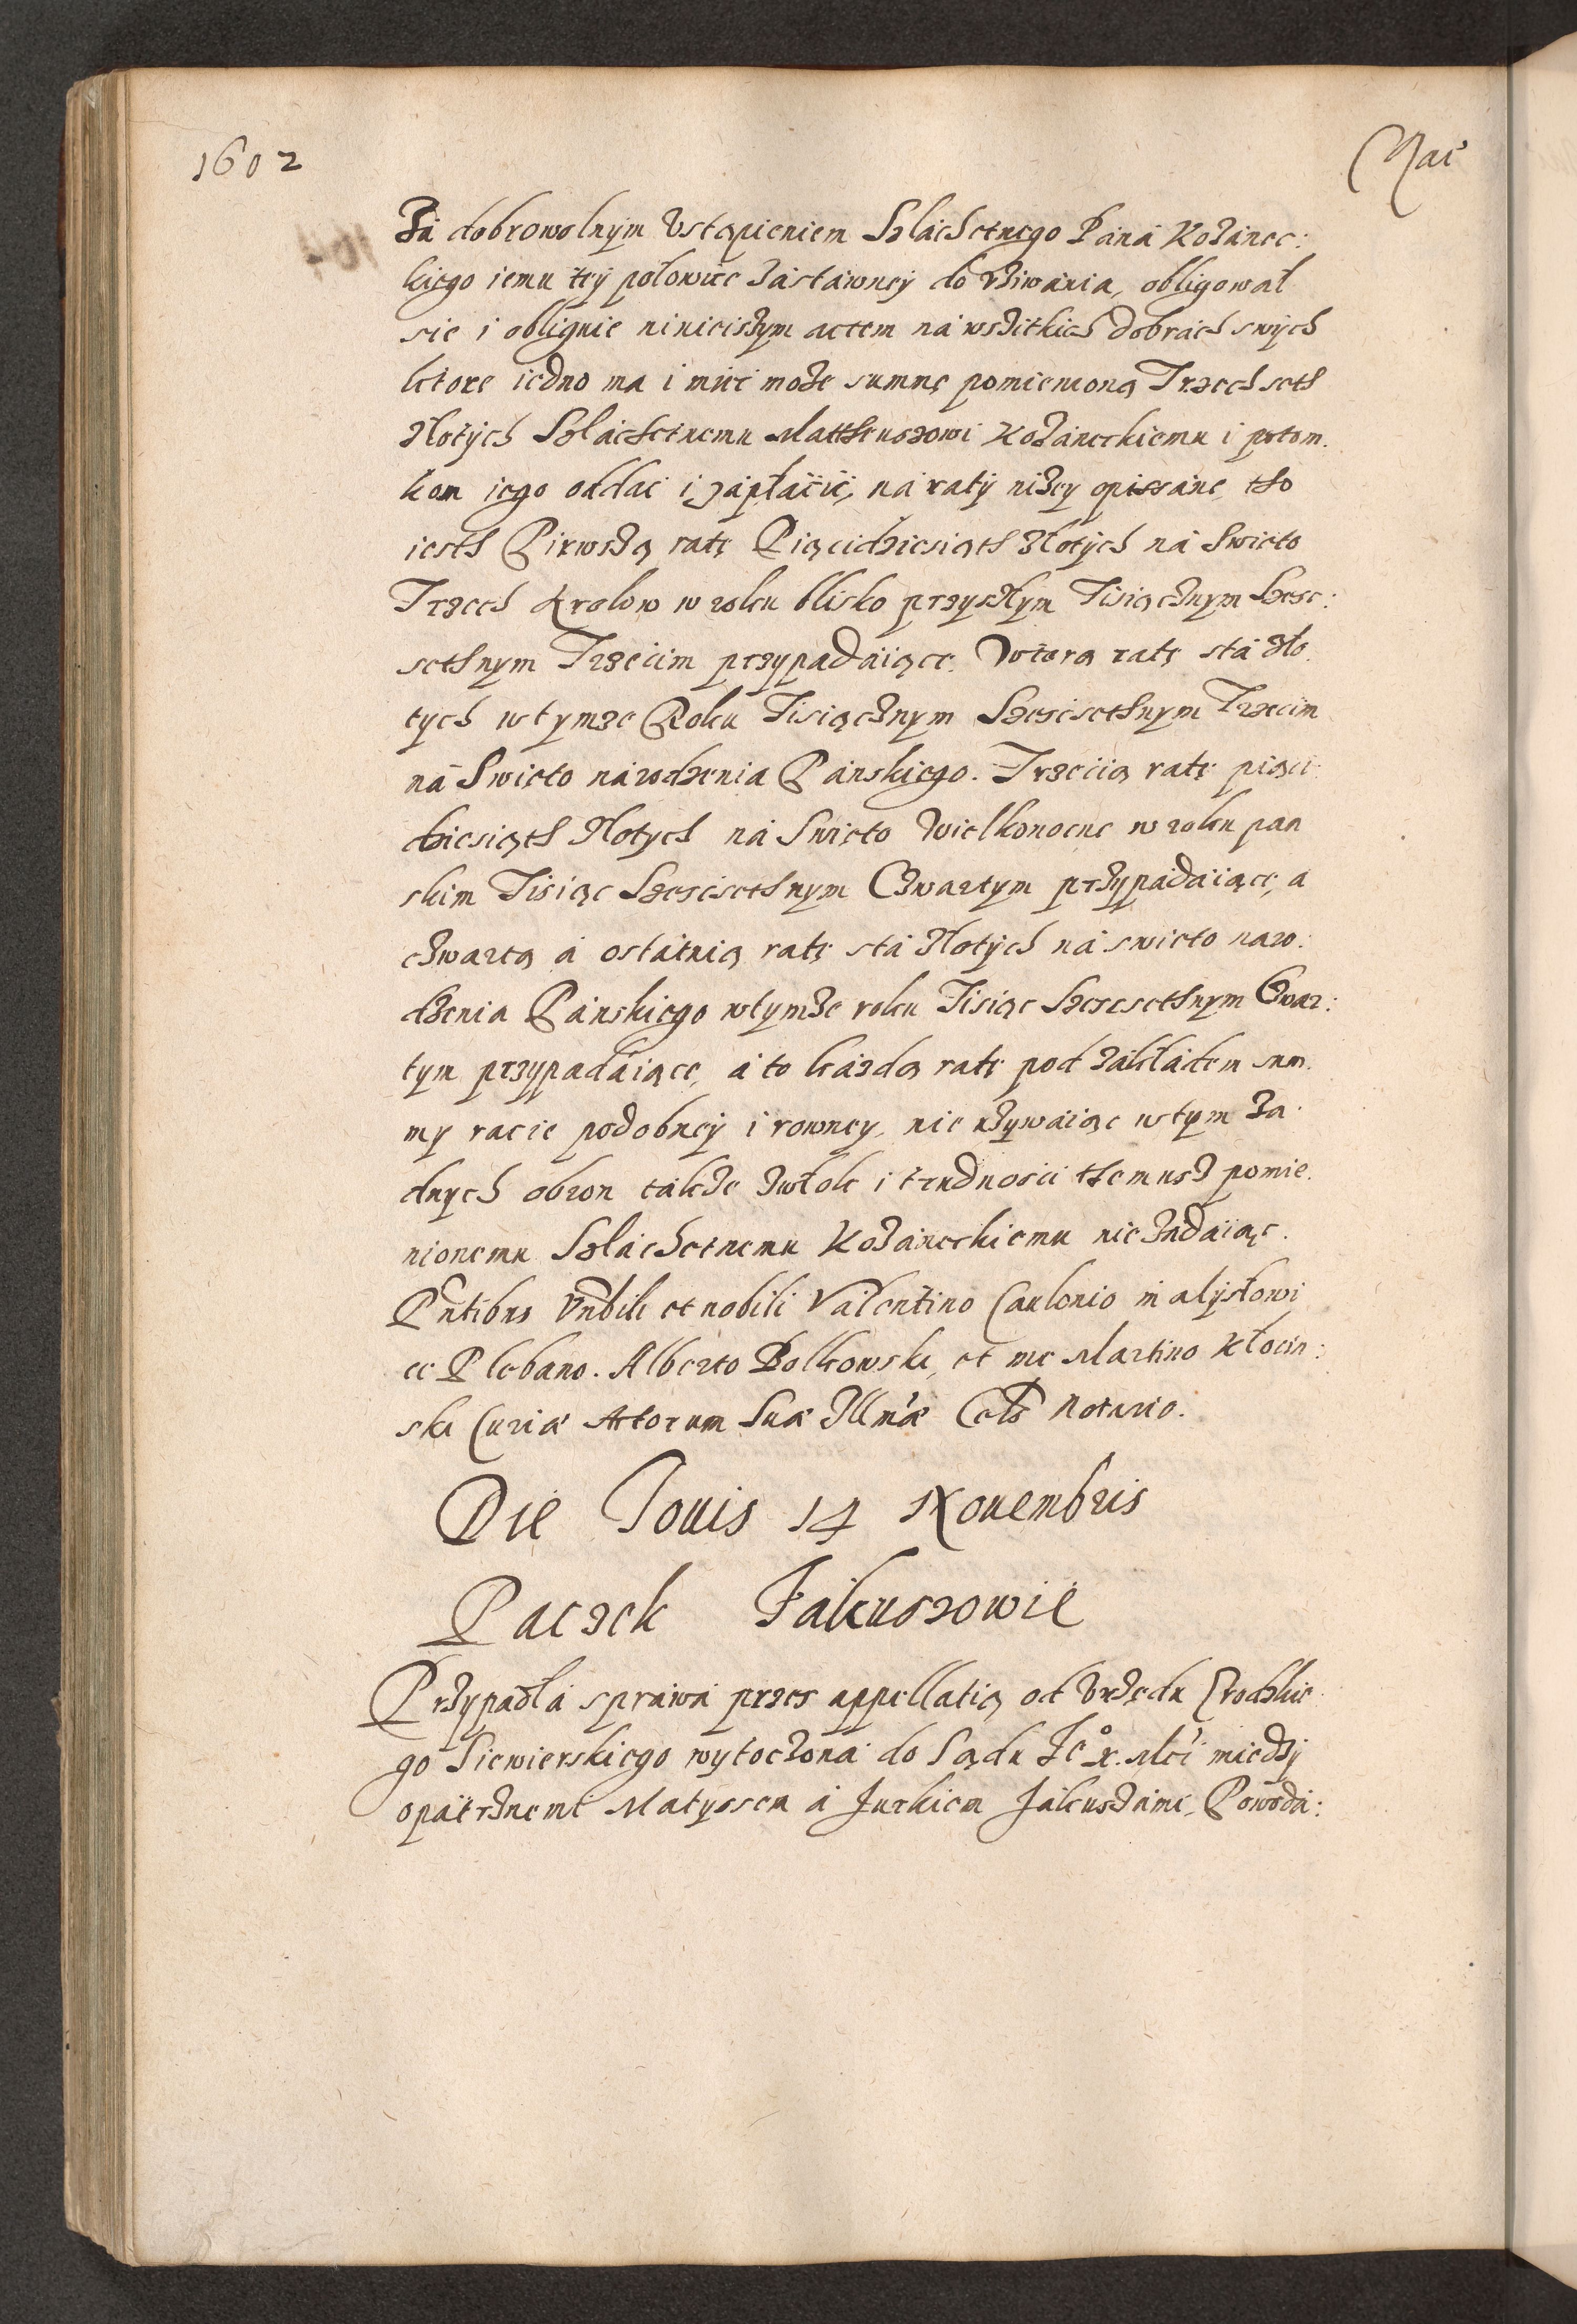 1602
Za dobrowolnym Vstąpieniem Szlachetnego Pana Kozanec:
kiego iemu tey połowice zastawney do vżiwania, obligował
sie i obliguie ninieiszym actem na wszitkich dobrach swych
ktore iedno ma i mieć może summę pomienioną Trzech seth
złotych Szlachetnemu Mattheuszowi Kozaneckiemu i potom.
kom iego oddać i zapłacić, na raty niżey opissane, tho
iesth Pirwszą ratę Pięcidziesiąth złotych na Swieto
Trzech Krolow w roku blisko przyszłym Tisiącznym Szesc:
sethnym Trzecim przypadaiące. Wtorą ratę sta zło.
tych w tymże Roku Tisiącznym Szescsethnym Trzecim
na Swieto narodzenia Panskiego. Trzecią ratę pięci
dziesiąth złotych na Swieto Wielkonocne w roku pan
skim Tisiąc Szescsethnym Czwartym przypadaiące, a
czwartą a ostatnią ratę sta złotych na swieto naro:
dzenia Panskiego w tymże roku Tisiąc Szescsethnym Czwar:
tym przypadaiące, a to każdą ratę pod zakładem sum.
my racie podobney i rowney, nie vżywaiąc w tym ża.
dnych obron także zwłok i trudnosci themusz pomie.
nionemu Szlachetnemu Kozaneckiemu nie zadaiąc.
Pntibus Vnbili et nobili Valentino Caulonio in
ec Plebano. Alberto Bolkowski, et me Martino Kłocin:
ski Curiæ Actorum Suæ Illmæ Cels Notario.
Die Iouis 14 Nouembris
Paczek Jakuszowie
Przypadła sprawa przes appellatią od Vrzędu Grodzkie
go Siewierskiego wytoczona do Sądu Je° X. Mci miedzy
opatrznemi Matyssem a Jurkiem Jakuszami, Powoda: